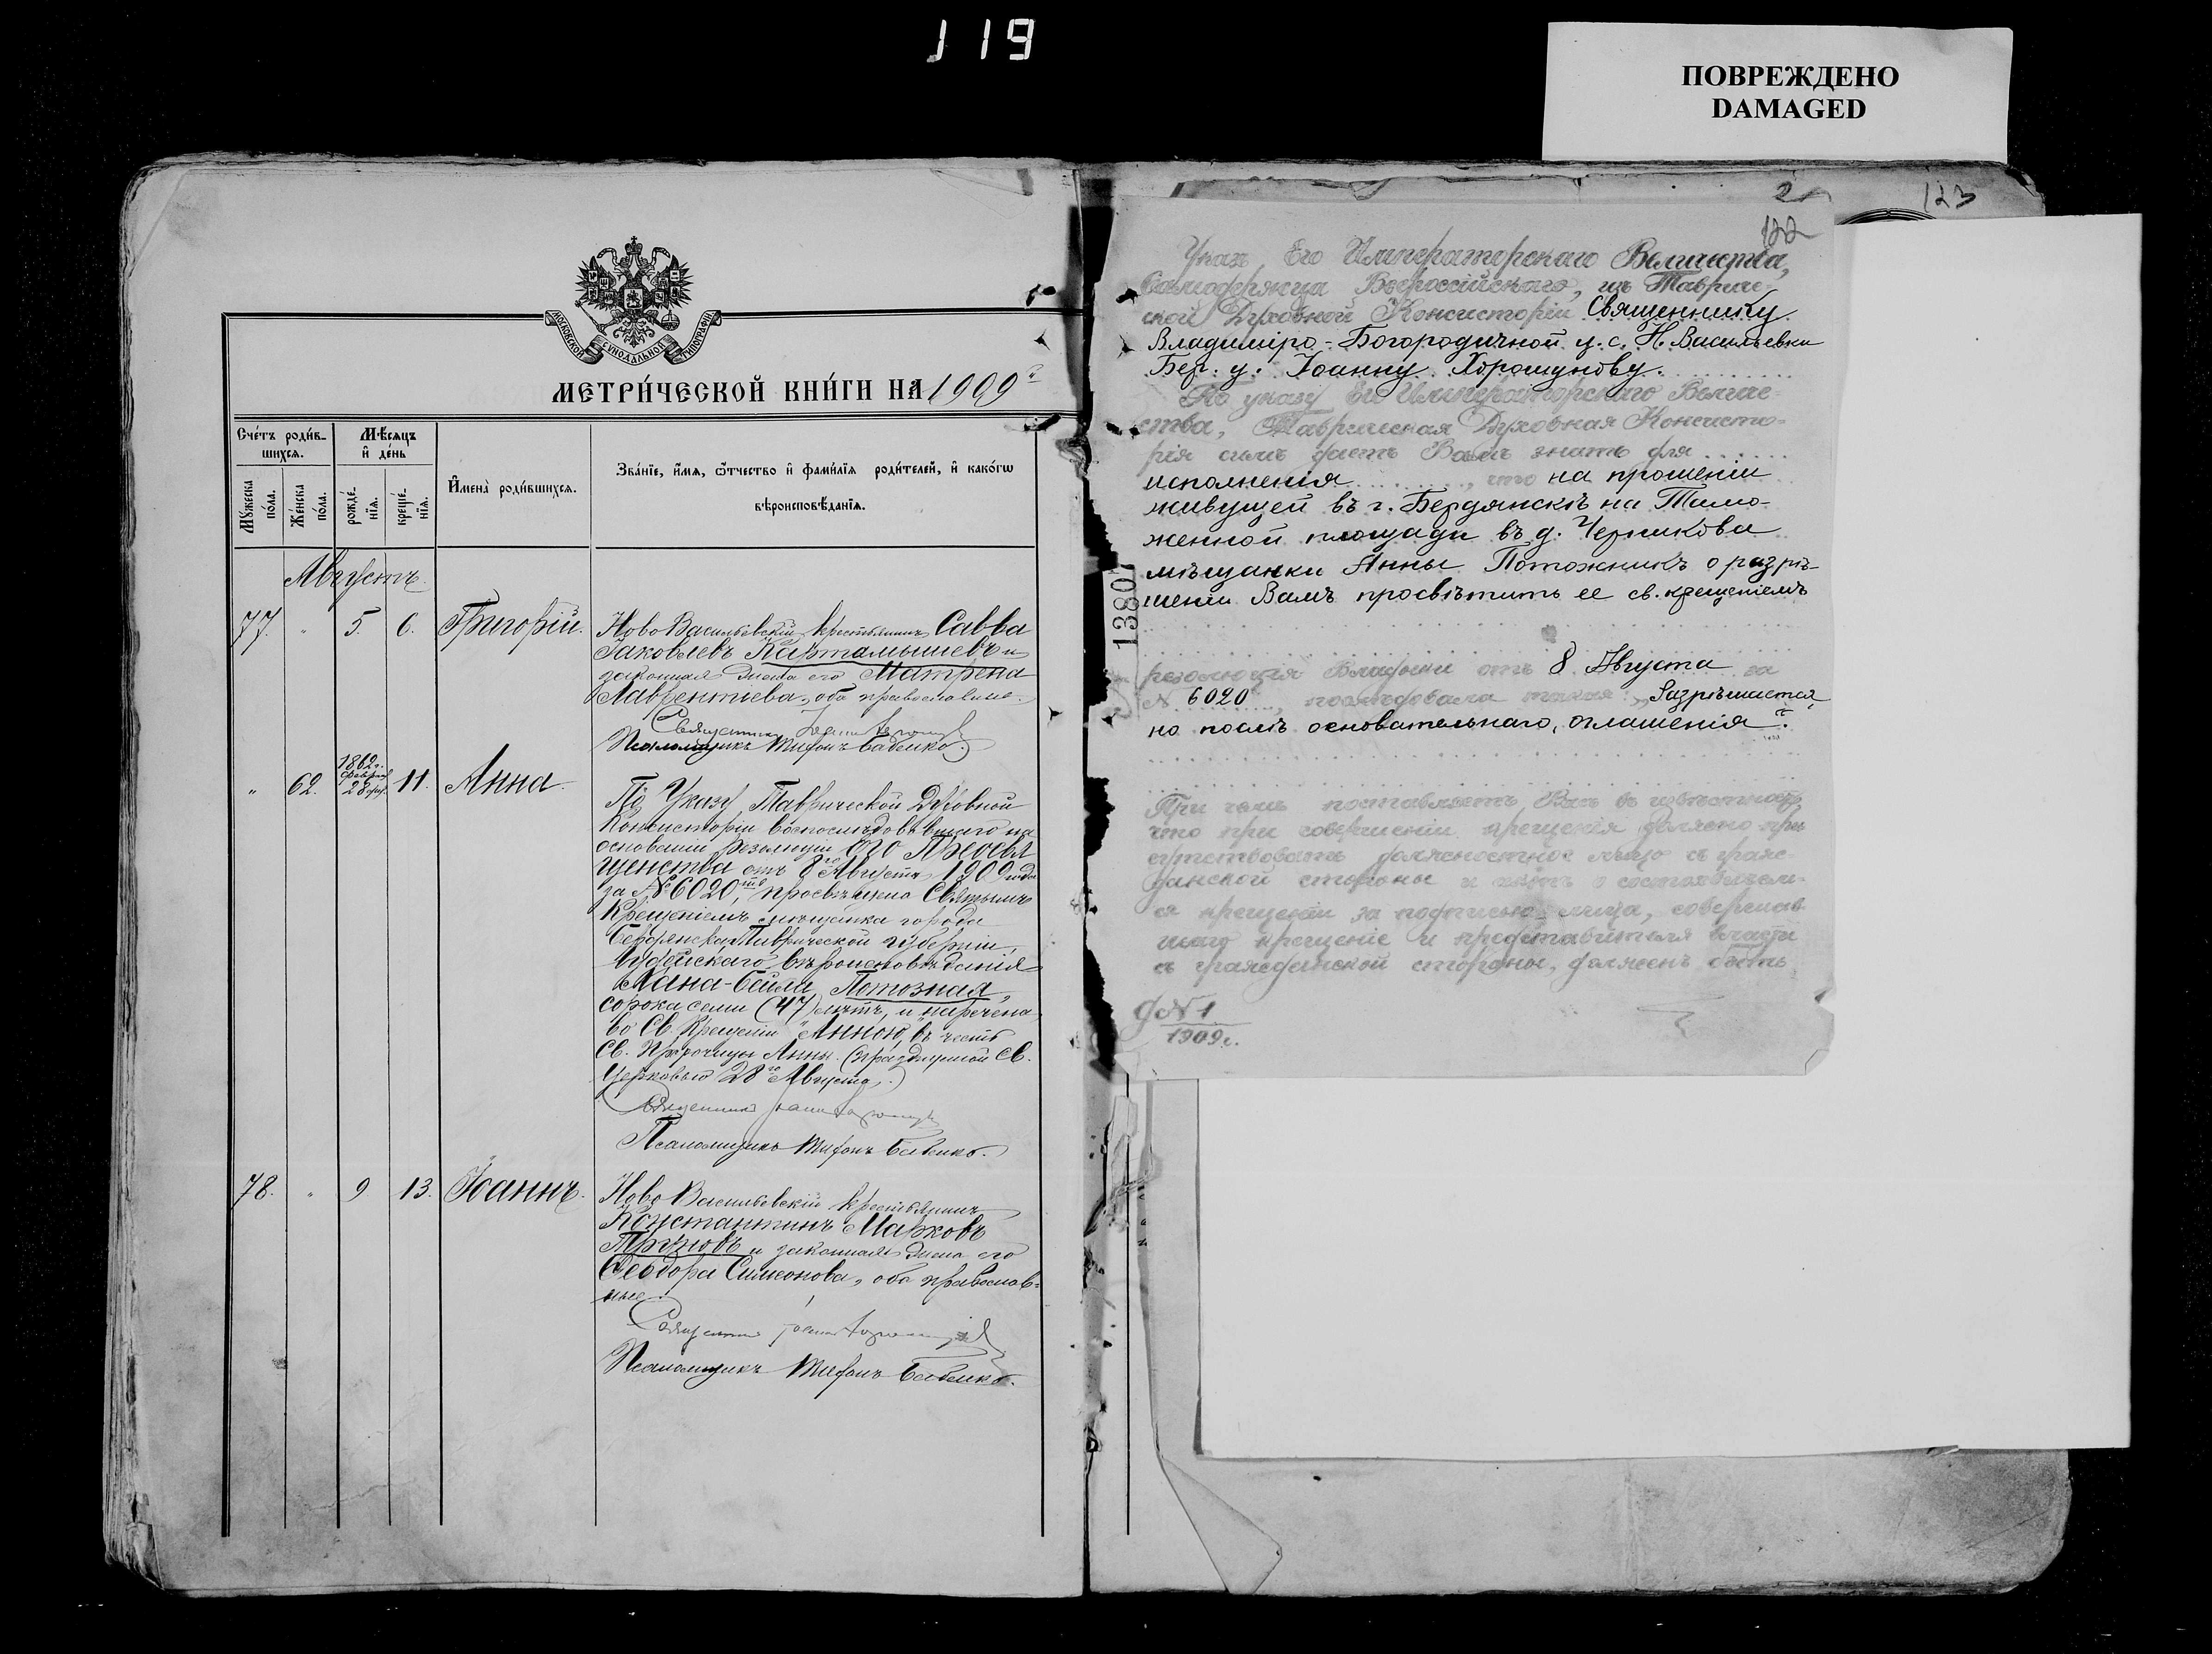 119
ПОВРЕЖДЕНО
DAMAGED
МОСКОВСКОЙ СѴНОДАЛЬНОЙ ТИПОГРАФІИ
МЕТРИ́ЧЕСКОЙ КНИ́ГИ НА 1909
Сче́тъ роди́в-
шихся.
Мѣ́сяцъ
и҆ де́нь
Мꙋ́жеска
по́ла.
Же́нска
по́ла.
рожде́-
нїя.
креще́-
нїя.
И҆мена̀ роди́вшихся.
Зва́нїе, и҆́мя, ѻ҆́тчество и҆ фами́лїя роди́телей, и҆ како́гѡ
вѣроисповѣ́данїя.
Августъ
77. " 5. 6. Григорій.
Ново Васильевскій крестьянинъ Савва
Іаковлевъ Картамышевъ и
законная жена его Матрена
Лаврентьева, оба православные.
Священникъ
Псаломщикъ Тифонъ Бабенко.
" 62. 1862 г. феврал 28 11. Анна
По Указу Таврической Духовной
Консисторіи воспослѣдовавшаго на
основаніи резолюціи Его Преосвя
щенства отъ 8го Августа 1909 года
за № 6020, просвѣщена Святымъ
Крещеніемъ мѣщанка города
Бердянска Таврической губерніи,
Іудейскаго вѣроисповѣданія
Хана-Бейла Потозная,
сорока семи (47) лѣтъ, и наречена
во Св. Крещеніи "Анною", въ честь
Св. Пророчицы Анны. (празднуемой Св.
Церковью 28го Августа.)
Священникъ
Псаломщикъ Тифонъ Бабенко.
78. " 9 13. Іоаннъ.
Ново Васильевскій крестьянинъ
Константинъ Марковъ
и законная жена его
Ѳеодора Симеонова, оба православ-
ные.
Священникъ
Псаломщикъ Тифонъ Бабенко.
2
123
122
Указъ Его Императорскаго Величества,
Самодержца Всероссійскаго, изъ Тавриче-
ской Духовной Консисторіи Священнику
Владиміро-Богородичной ц. с. Н. Васильевки
Бер. у. Іоанну Хорошунову.
По указу Его Императорскаго Величе-
ства, Таврическая Духовная Консисто-
рія симъ даетъ Вамъ знать для
исполненія, что на прошеніи
живущей въ г. Бердянскѣ на Тамо-
женной площади въ д. Черникова
мѣщанки Анны Потожникъ о разрѣ-
шеніи Вамъ просвѣтить ее св. крещеніемъ
1380
резолюція Владыки отъ 8 Августа за
№ 6020, послѣдовала такая: „Разрѣшается,
но послѣ основательнаго оглашенія".
При чемъ поставляетъ Васъ въ извѣстность,
что при совершеніи крещенія должно при
сутствовать должностное лицо съ граж-
данской стороны и актъ о состоявшем-
ся крещеніи за подписью лица, совершав
шаго крещеніе и представителя власти
съ гражданской стороны, долженъ быть
№ 1
1909 г.